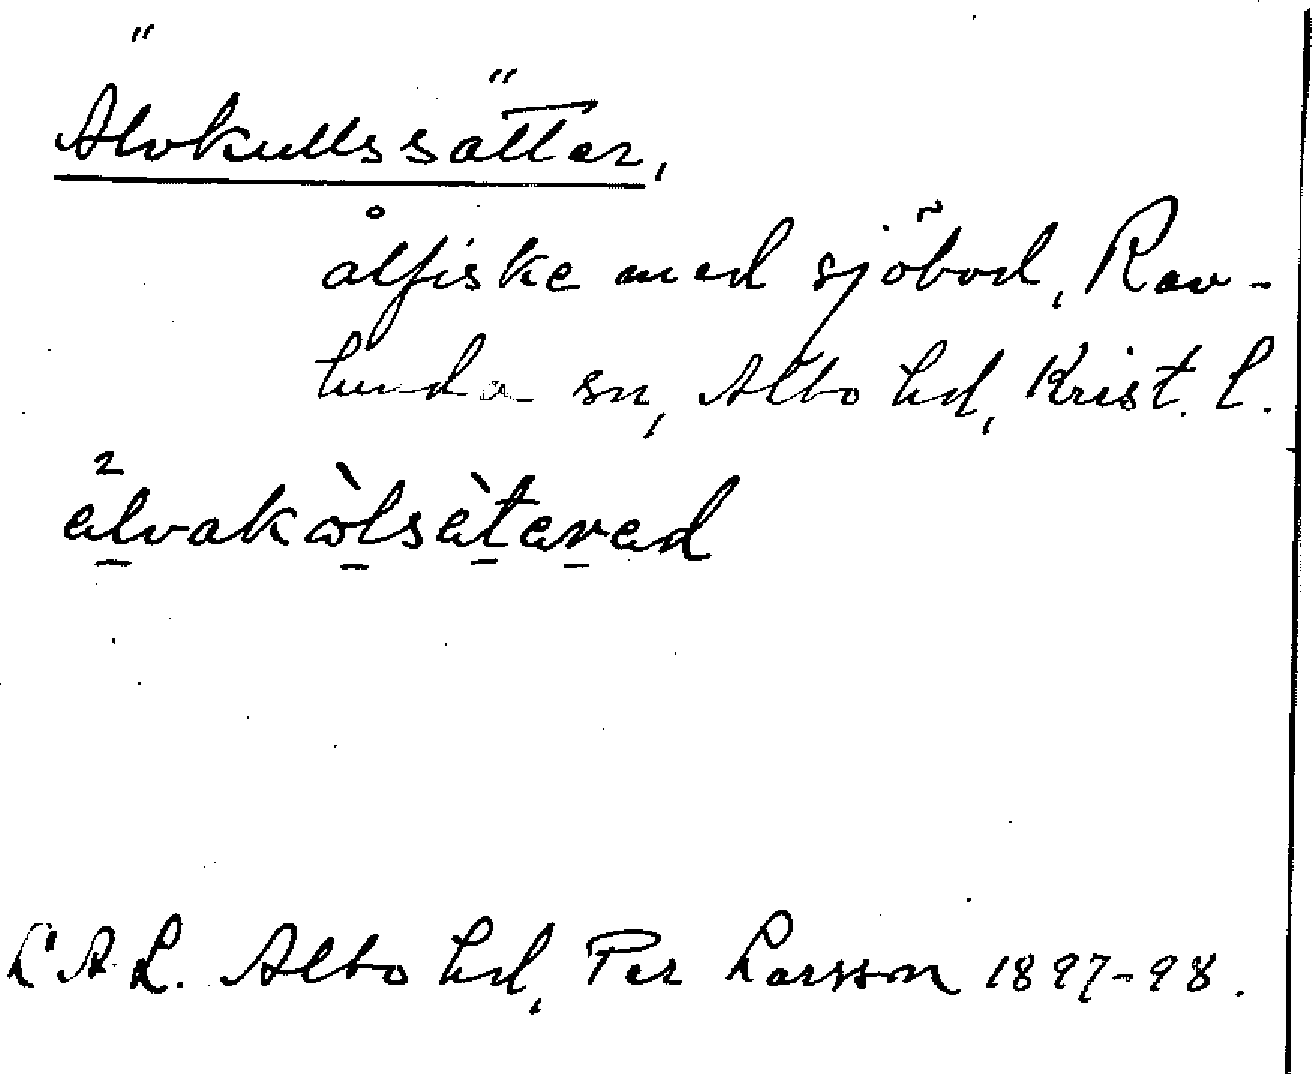 Älvkullssätter,
ålfiske med sjöbod, Rav-
lunda sn, Albo hd, Krist. l.
älvakòlsètared
L.A.L. Albo hd, Per Larsson 1897-98.